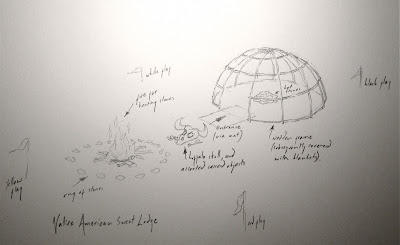 white flag
black flag
fire for
heating stones
hot
stones
entrance
(via mat)
wooden frame
(subsequently covered
with blankets)
buffalo skull, and
assorted sacred objects
yellow
flag
ring of stones
red flag
Native American Sweat Lodge